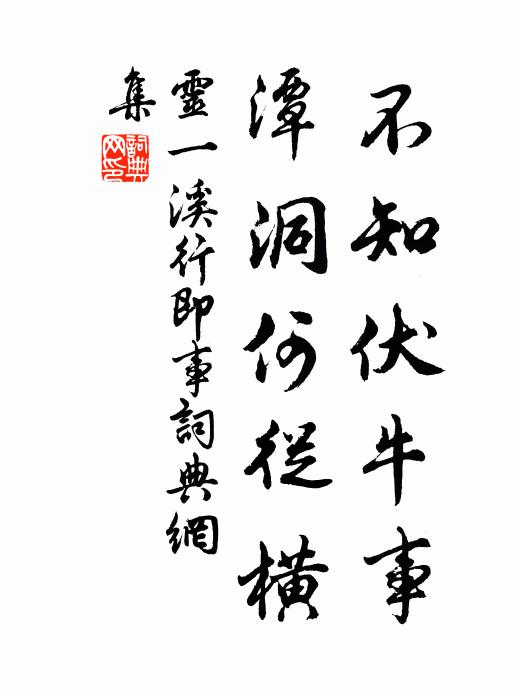 不知伏牛事
潭洞何從橫
靈一溪行即事詞典網
集
詞典网印